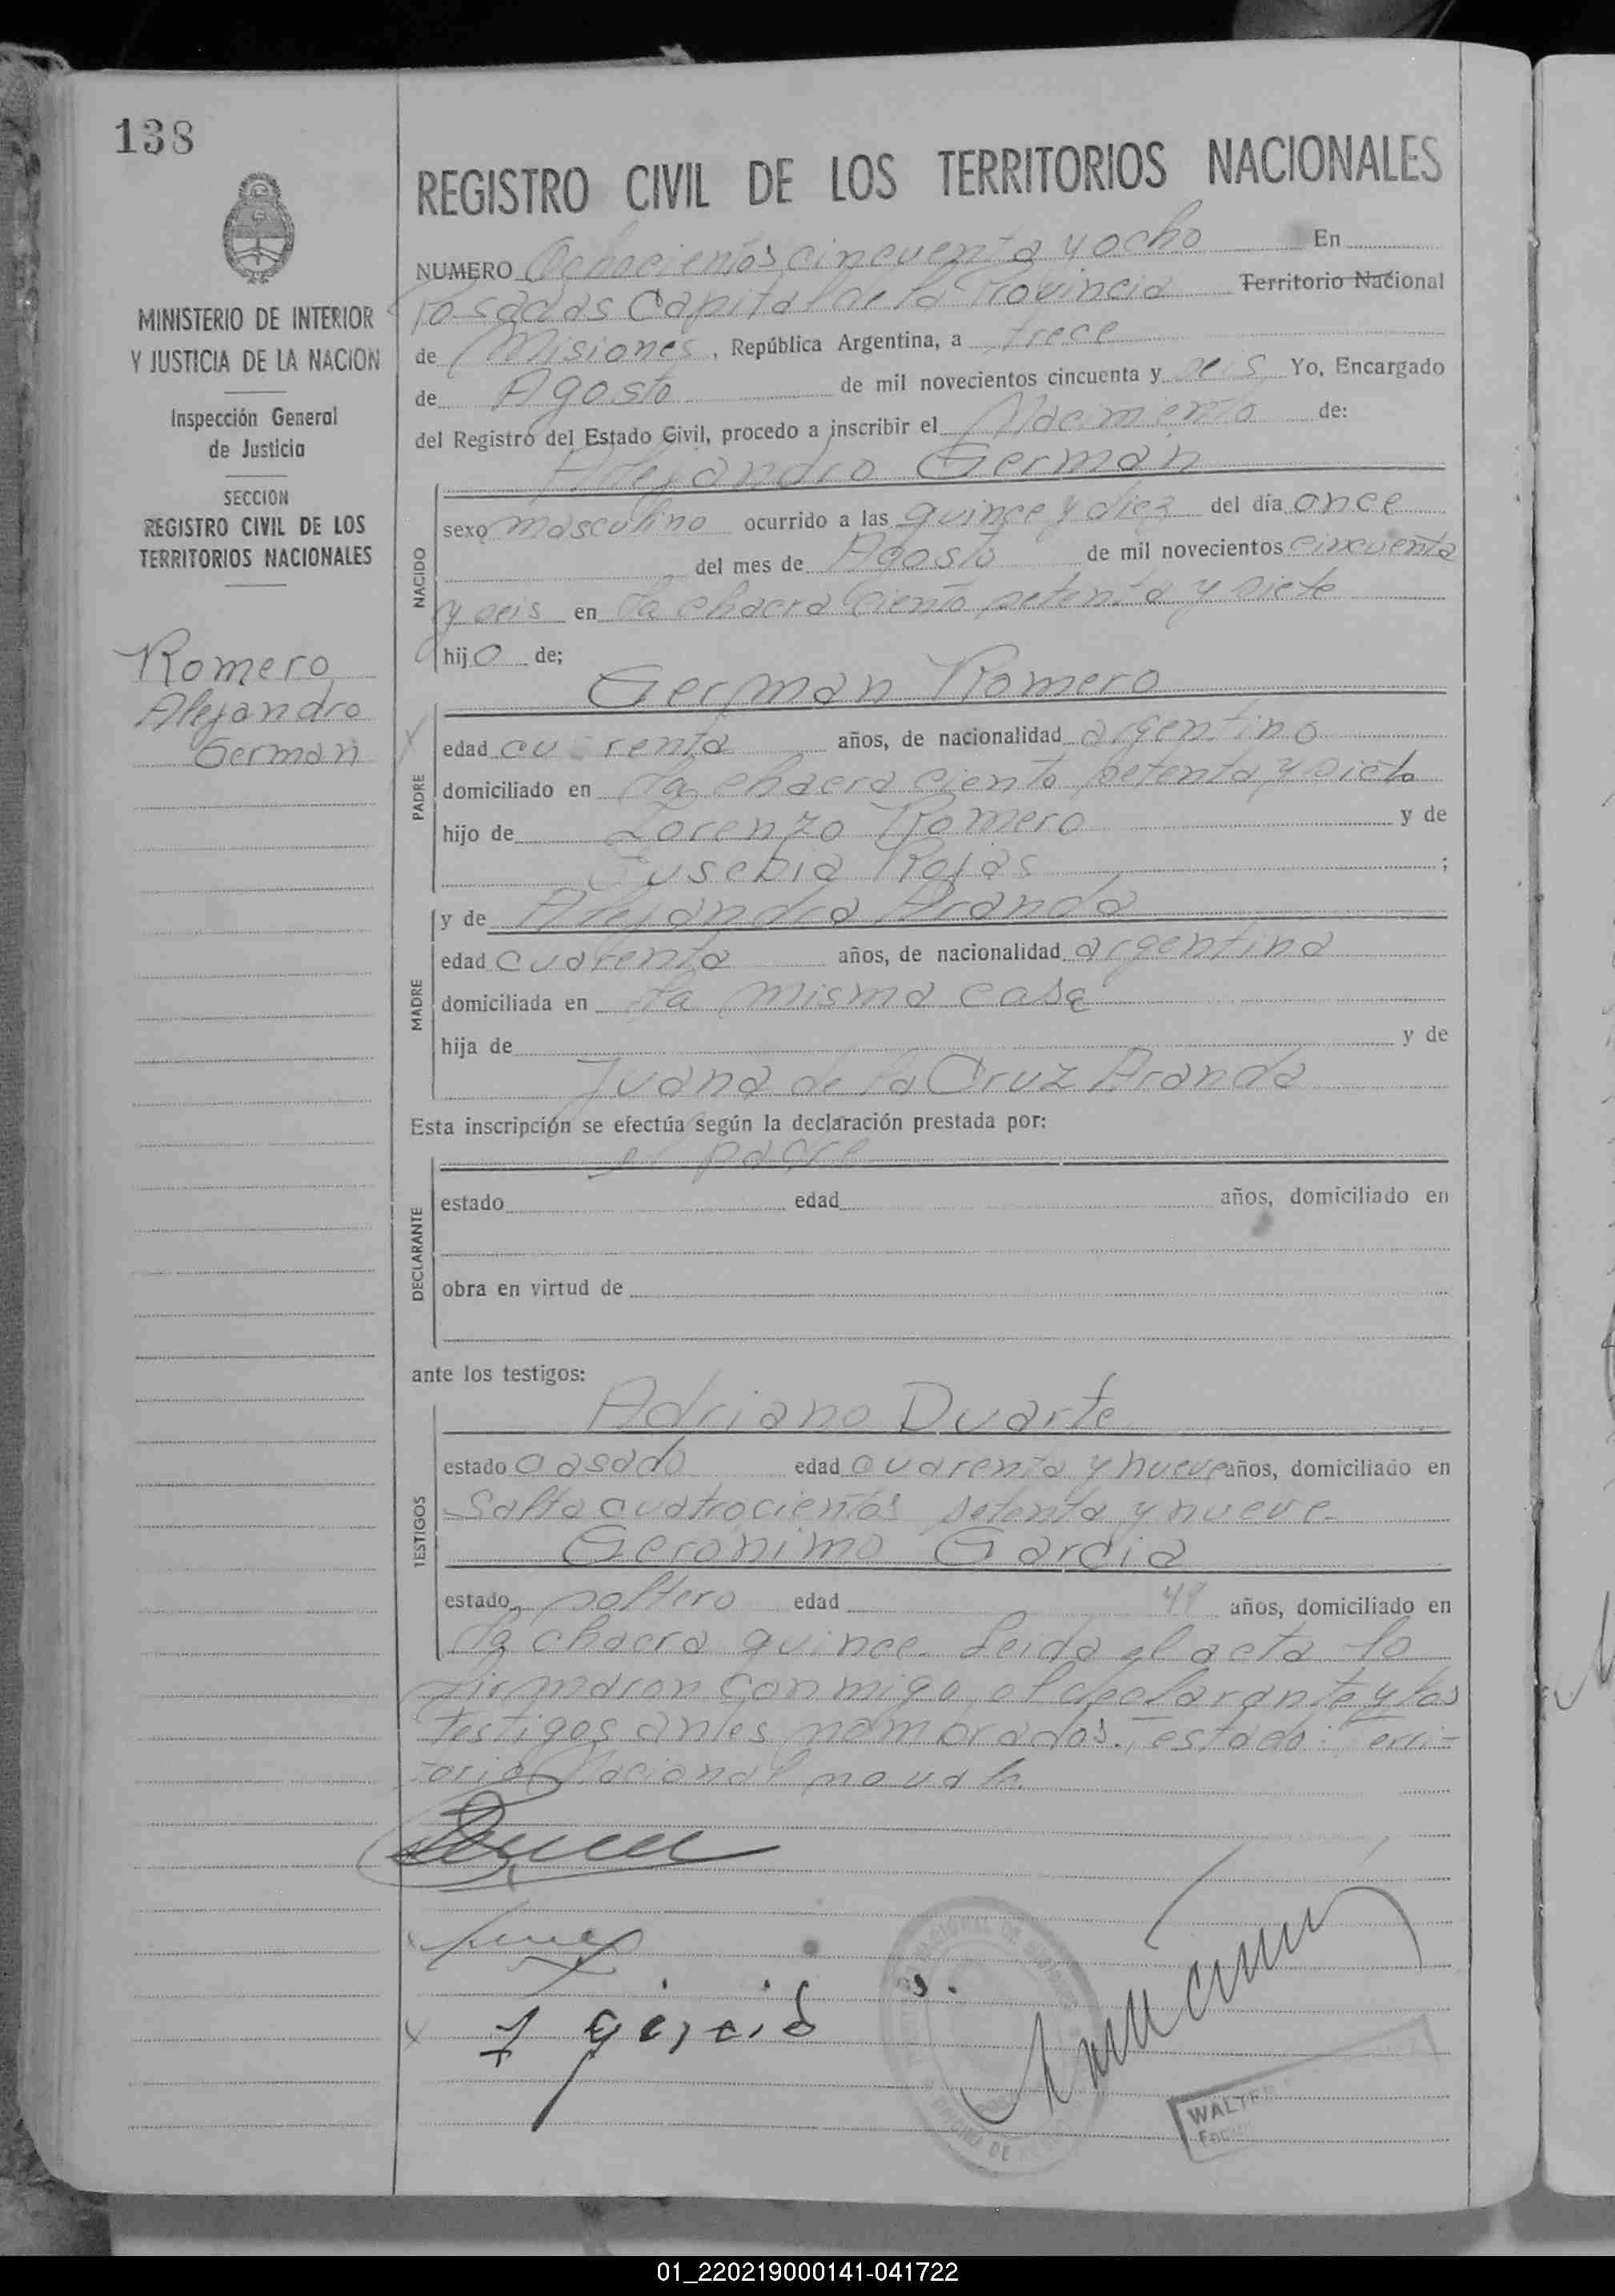 138
MINISTERIO DE INTERIOR
Y JUSTICIA DE LA NACION
Inspección General
de Justicia
SECCION
REGISTRO CIVIL DE LOS
TERRITORIOS NACIONALES
Romero
Alejandro
German
REGISTRO CIVIL DE LOS TERRITORIOS NACIONALES
NUMERO Ochocientos cincuenta y ocho En
Posadas Capital de la Provincia Territorio Nacional
de Misiones, República Argentina, a trece
de Agosto de mil novecientos cincuenta y seis Yo, Encargado
del Registro del Estado Civil, procedo a inscribir el Nacimiento de:
Alejandro German
NACIDO
sexo masculino ocurrido a las quince y diez del día once
del mes de Agosto de mil novecientos cincuenta
y seis en la chacra ciento setenta y siete
hijo de;
German Romero
PADRE
edad cuarenta años, de nacionalidad argentino
domiciliado en la chacra ciento setenta y siete
hijo de Lorenzo Romero y de
Eusebia Rojas ;
MADRE
y de Alejandra Aranda
edad cuarenta años, de nacionalidad argentina
domiciliada en la misma casa
hija de y de
Juana de la Cruz Aranda
Esta inscripción se efectúa según la declaración prestada por:
el padre
DECLARANTE
estado edad años, domiciliado en
obra en virtud de
ante los testigos:
Adriano Duarte
TESTIGOS
estado casado edad cuarenta y nueve años, domiciliado en
Salta cuatrocientos setenta y nueve.
Geronimo Garcia
estado soltero edad años, domiciliado en
la chacra quince. Leida el acta la
firmaron conmigo el declarante y los
testigos antes nombrados. Testado: Terri-
torio Nacional no vale.
WALTE
01_220219000141-041722